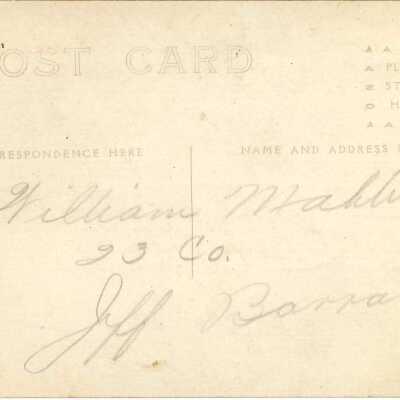 OST CARD
A A
A PL
Z ST
O H
A A
RESPONDENCE HERE
NAME AND ADDRESS
William
23 Co.
Jff Barra